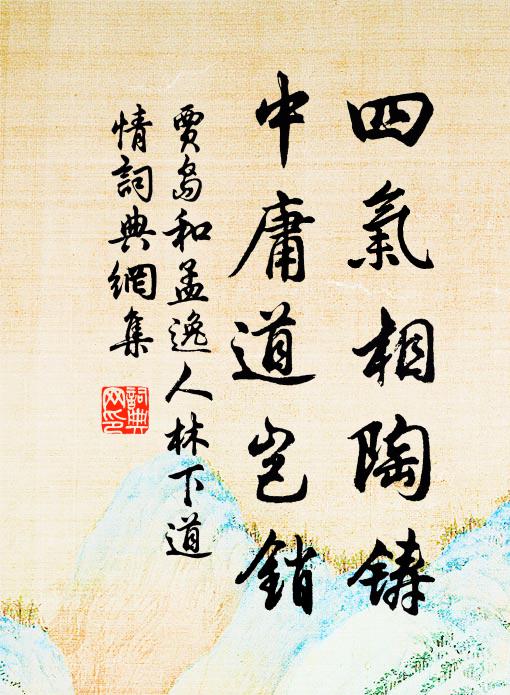 四氣相陶鑄
中庸道岂銷
賈島和孟逸人林下道
情詞典網集
詞典
网印